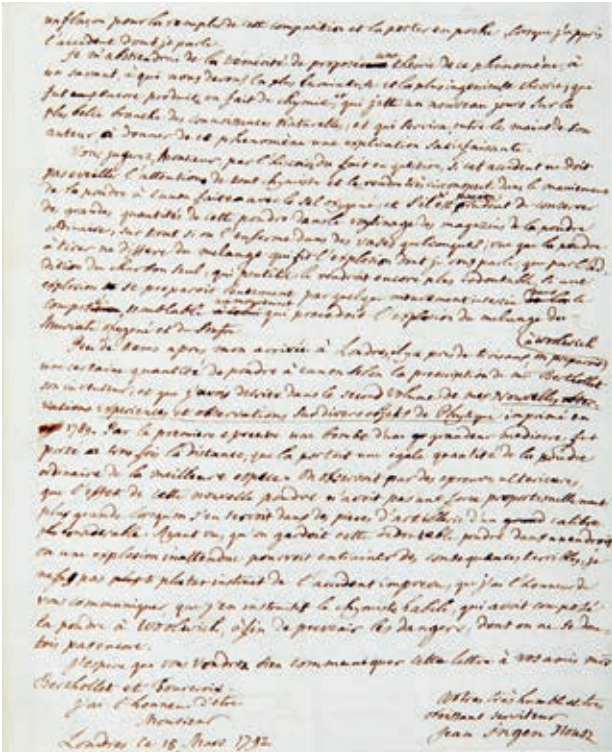 un flaçon pour le remplir de cette composition et la porter en poche, lorsque j'appris
l'accident dont je parle.
Je m'abstiendrai de la témérité de proposer une théorie de ce phenomène, à
un savant, à qui nous devons la plus lumineuse et la plus ingenieuse théorie, que
fut encore produite en fait de chymie, qui jette un nouveau jour sur la
plus belle branche des connoissances naturelles, et qui servira, entre les mains de son
auteur, à donner de ce phénomène une explication satisfaisante.
Vous jugerez, Monsieur, par l'exposé du fait en question, si cet accident ne doit
pas eveiller l'attention de tout chymiste et le rendre circonspect dans le maniement
de la poudre à canon faite avec le sel oxygené, et s'il est prudent de conserver
de grandes quantités de cette poudre dans le voisinage des magazins de la poudre
ordinaire, sur tout si on l'enferme dans des vases quelconques; vue que la poudre
à tirer ne differe du melange qui fit l'explosion dont je vous parle, que par l'ad
dition du charbon seul, qui peut etre le rendroit encore plus redoutable, si une
explosion se preparoit par quelque mouvement intestin
semblable à celui qui preceda l'explosion du melange du
Muriate oxygené et du soufre.
Peu de tems apres mon arrivée à Londres, on prepara à Woolwich
une certaine quantité de poudre à canon selon la prescription de Mr Berthollet
son inventeur, et que j'avois decrite dans le second volume de mes Nouvelles
experiences et observations sur divers objets de Physique imprimé en
1789. Par la premiere epreuve une bombe d'une grandeur mediocre fut
porté à trois fois la distance, que la portoit une egale quantité de la poudre
ordinaire de la meilleure espece. On observoit par des epreuves ulterieures,
que l'effet de cette nouvelle poudre n'avoit pas une force proportionellement
plus grande lorsqu'on s'en servoit dans des pieces d'artillerie d'un calibre
plus considerable. Ayant vu, qu'on gardoit cette redoutable poudre dans un endroit
où une explosion inattendue pourroit entrainer des consequences terribles, je
ne fus pas plutot instruit de l'accident imprevu, que j'ai l'honneur de
vous communiquer, que j'en instruisit le chymiste habile, qui avoit composé
la poudre à Woolwich, à fin de prevenir les dangers, dont on ne se dou
toit pas encore.
J'espere que vous voudrez bien communiquer cette lettre à vos amis Mrs
Berthollet et Fourcroy.
J'ai l'honneur d'être
Monsieur
Votre très humble et très
obeissant serviteur
Jean Ingen Housz
Londres ce 15 Mars 1792